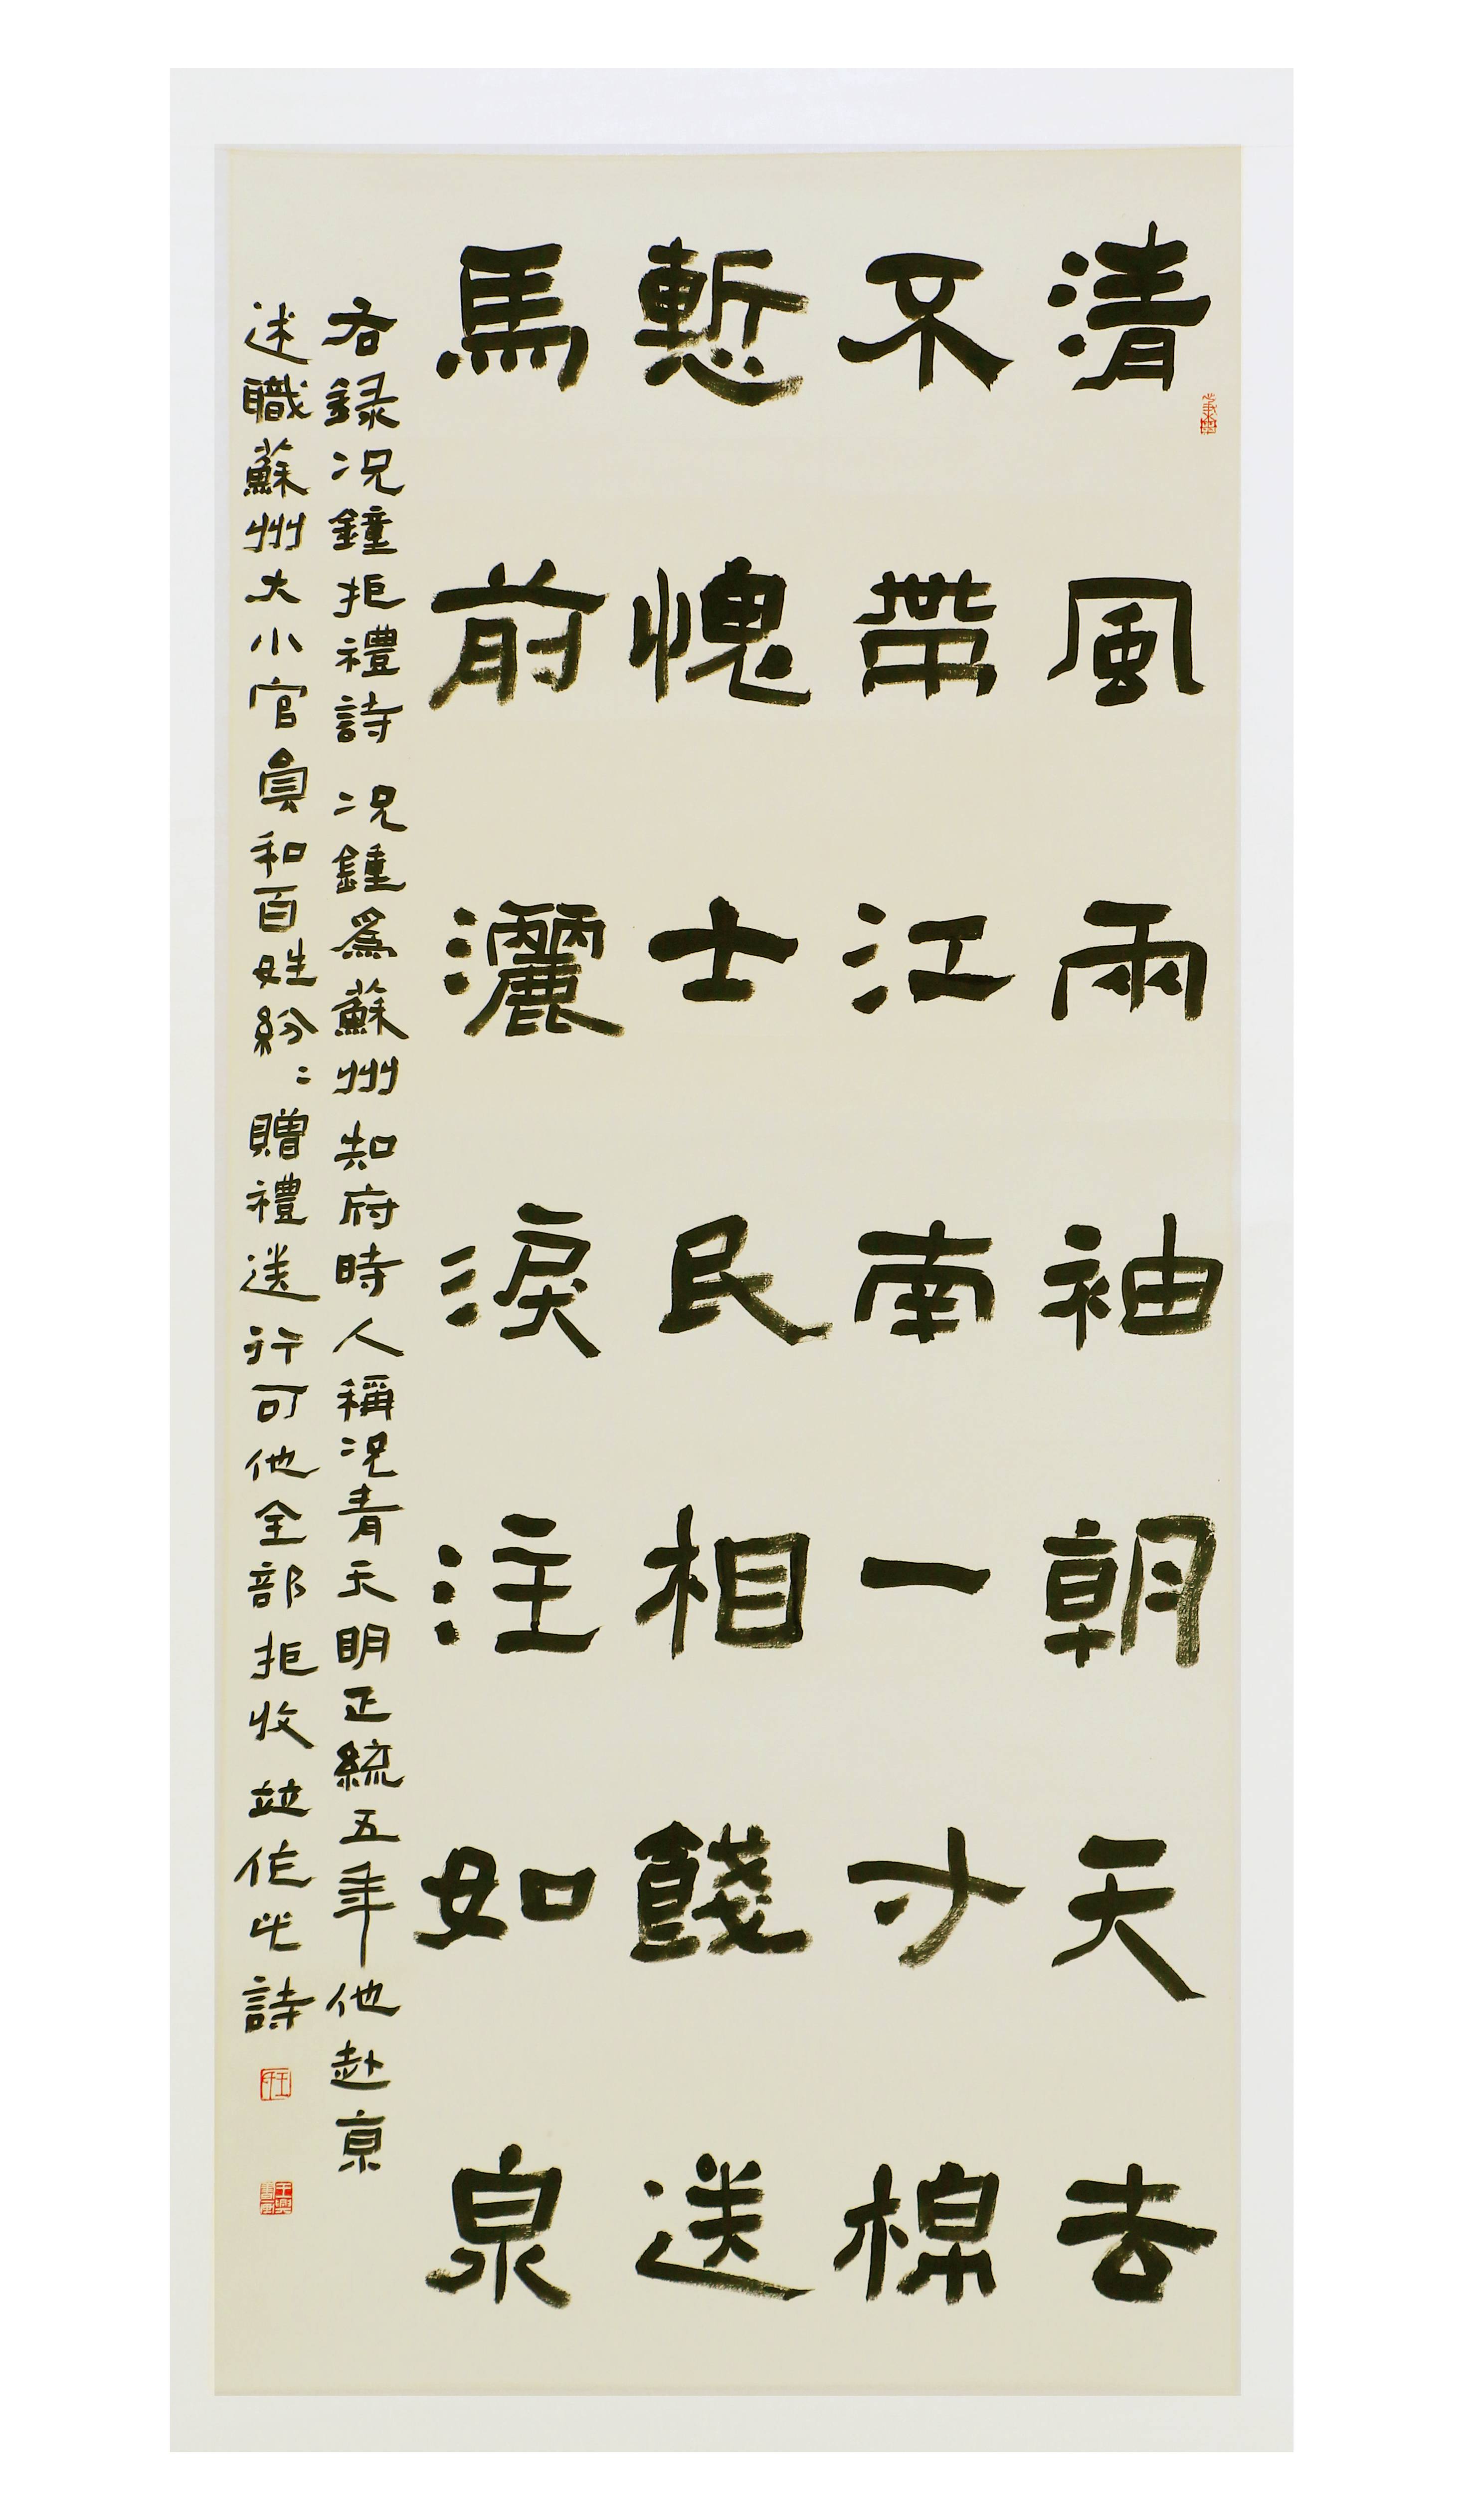 清風兩袖朝天去
不帶江南一寸棉
慙愧士民相餞送
馬前灑淚注如泉
右録况鐘拒禮詩 况鍾爲蘇州知府時人稱况青天明正統五年他赴京
述職蘇州大小官員和百姓紛〻贈禮送行可他全部拒收竝作此詩